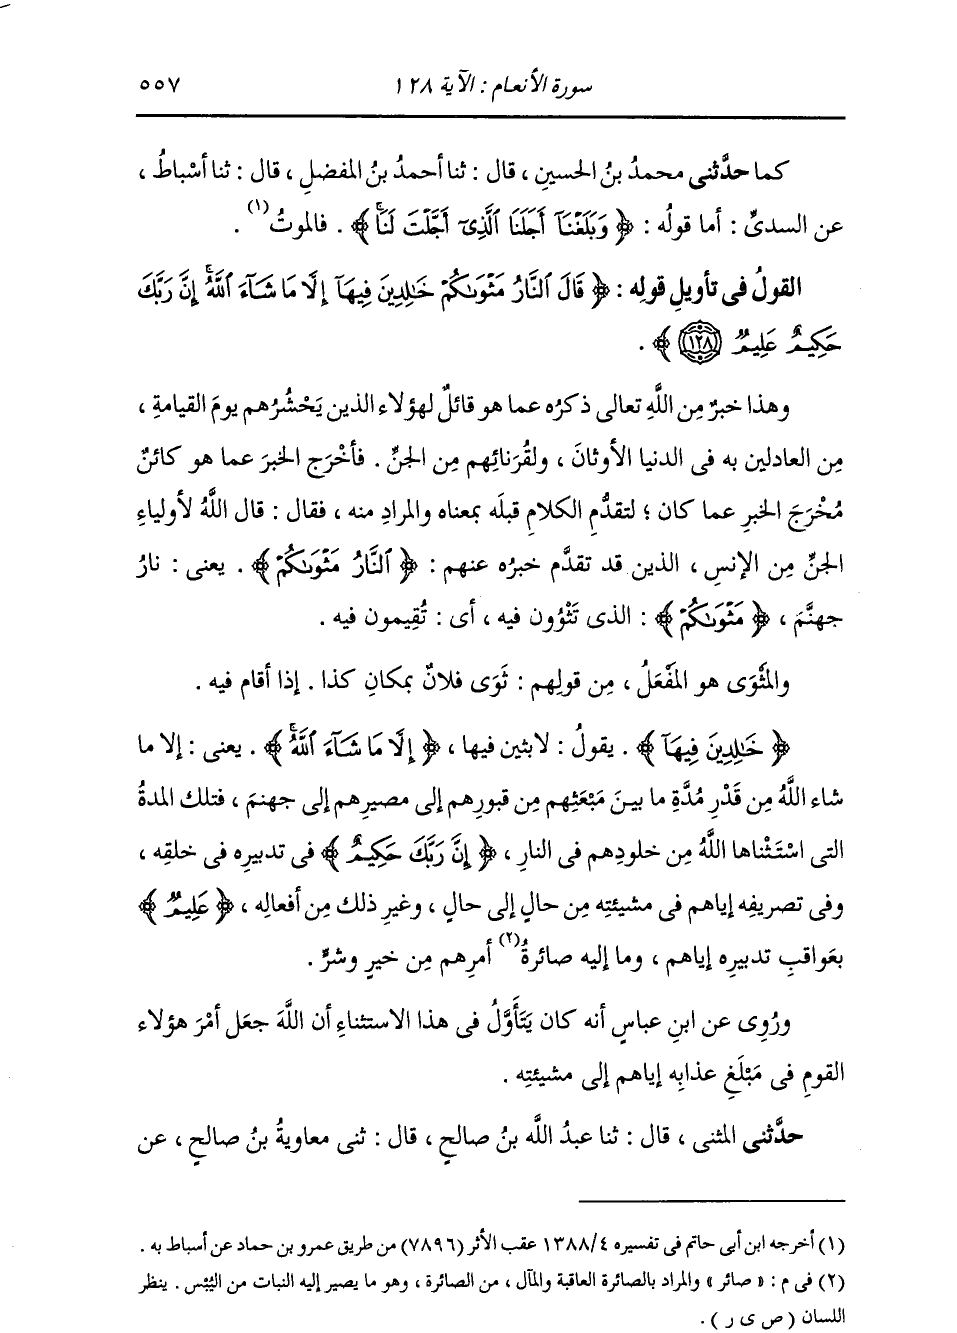 سورة الأنعام : الآية ١٢٨ ٥٥٧
كما حدَّثنى محمدُ بنُ الحسينِ ، قال : ثنا أحمدُ بنُ المفضلِ ، قال : ثنا أسْباطُ ،
عن السدىِّ : أما قولُه : ﴿ وَبَلَغْنَآ أَجَلَنَا ٱلَّذِىٓ أَجَّلْتَ لَنَاۚ ﴾ . فالموتُ(١) .
القولُ فى تأويلِ قولِه : ﴿ قَالَ ٱلنَّارُ مَثْوَىٰكُمْ خَٰلِدِينَ فِيهَآ إِلَّا مَا شَآءَ ٱللَّهُۗ إِنَّ رَبَّكَ
حَكِيمٌ عَلِيمٌ ١٢٨ ﴾ .
وهذا خبرٌ مِن اللَّهِ تعالى ذكرُه عما هو قائلٌ لهؤلاء الذين يَحْشُرُهم يومَ القيامةِ ،
مِن العادلين به فى الدنيا الأوثانَ ، ولقُرَنائِهم مِن الجنِّ . فأخْرَج الخبرَ عما هو كائنٌ
مُخْرَجَ الخبرِ عما كان ؛ لتقدُّمِ الكلامِ قبلَه بمعناه والمرادِ منه ، فقال : قال اللَّهُ لأولياءِ
الجنِّ مِن الإنسِ ، الذين قد تقدَّم خبرُه عنهم : ﴿ ٱلنَّارُ مَثْوَىٰكُمْ ﴾ . يعنى : نارُ
جهنَّمَ ، ﴿ مَثْوَىٰكُمْ ﴾ : الذى تَثْوُون فيه ، أى : تُقِيمون فيه .
والمَثْوَى هو المَفْعَلُ ، مِن قولِهم : ثَوَى فلانٌ بمكانِ كذا . إذا أقام فيه .
﴿ خَٰلِدِينَ فِيهَآ ﴾ . يقولُ : لابثين فيها ، ﴿ إِلَّا مَا شَآءَ ٱللَّهُۗ ﴾ . يعنى : إلا ما
شاء اللَّهُ مِن قَدْرِ مُدَّةِ ما بينَ مَبْعَثِهم مِن قبورِهم إلى مصيرِهم إلى جهنمَ ، فتلك المدةُ
التى اسْتَثْناها اللَّهُ مِن خلودِهم فى النارِ ، ﴿ إِنَّ رَبَّكَ حَكِيمٌ ﴾ فى تدبيرِه فى خلقِه ،
وفى تصريفِه إياهم فى مشيئتِه مِن حالٍ إلى حالٍ ، وغيرِ ذلك مِن أفعالِه ، ﴿ عَلِيمٌ ﴾
بعَواقبِ تدبيرِه إياهم ، وما إليه صائرةُ(٢) أمرِهم مِن خيرٍ وشرٍّ .
ورُوِى عن ابنِ عباسٍ أنه كان يَتَأَوَّلُ فى هذا الاستثناءِ أن اللَّهَ جعَل أمْرَ هؤلاء
القومِ فى مَبْلَغِ عذابِه إياهم إلى مشيئتِه .
حدَّثنى المثنى ، قال : ثنا عبدُ اللَّه بنُ صالحٍ ، قال : ثنى معاويةُ بنُ صالحٍ ، عن
(١) أخرجه ابن أبى حاتم فى تفسيره ١٣٨٨/٤ عقب الأثر (٧٨٩٦) من طريق عمرو بن حماد عن أسباط به .
(٢) فى م : « صائر » والمراد بالصائرة العاقبة والمآل ، من الصائرة ، وهو ما يصير إليه النبات من اليُبْس . ينظر
اللسان ( ص ى ر ) .